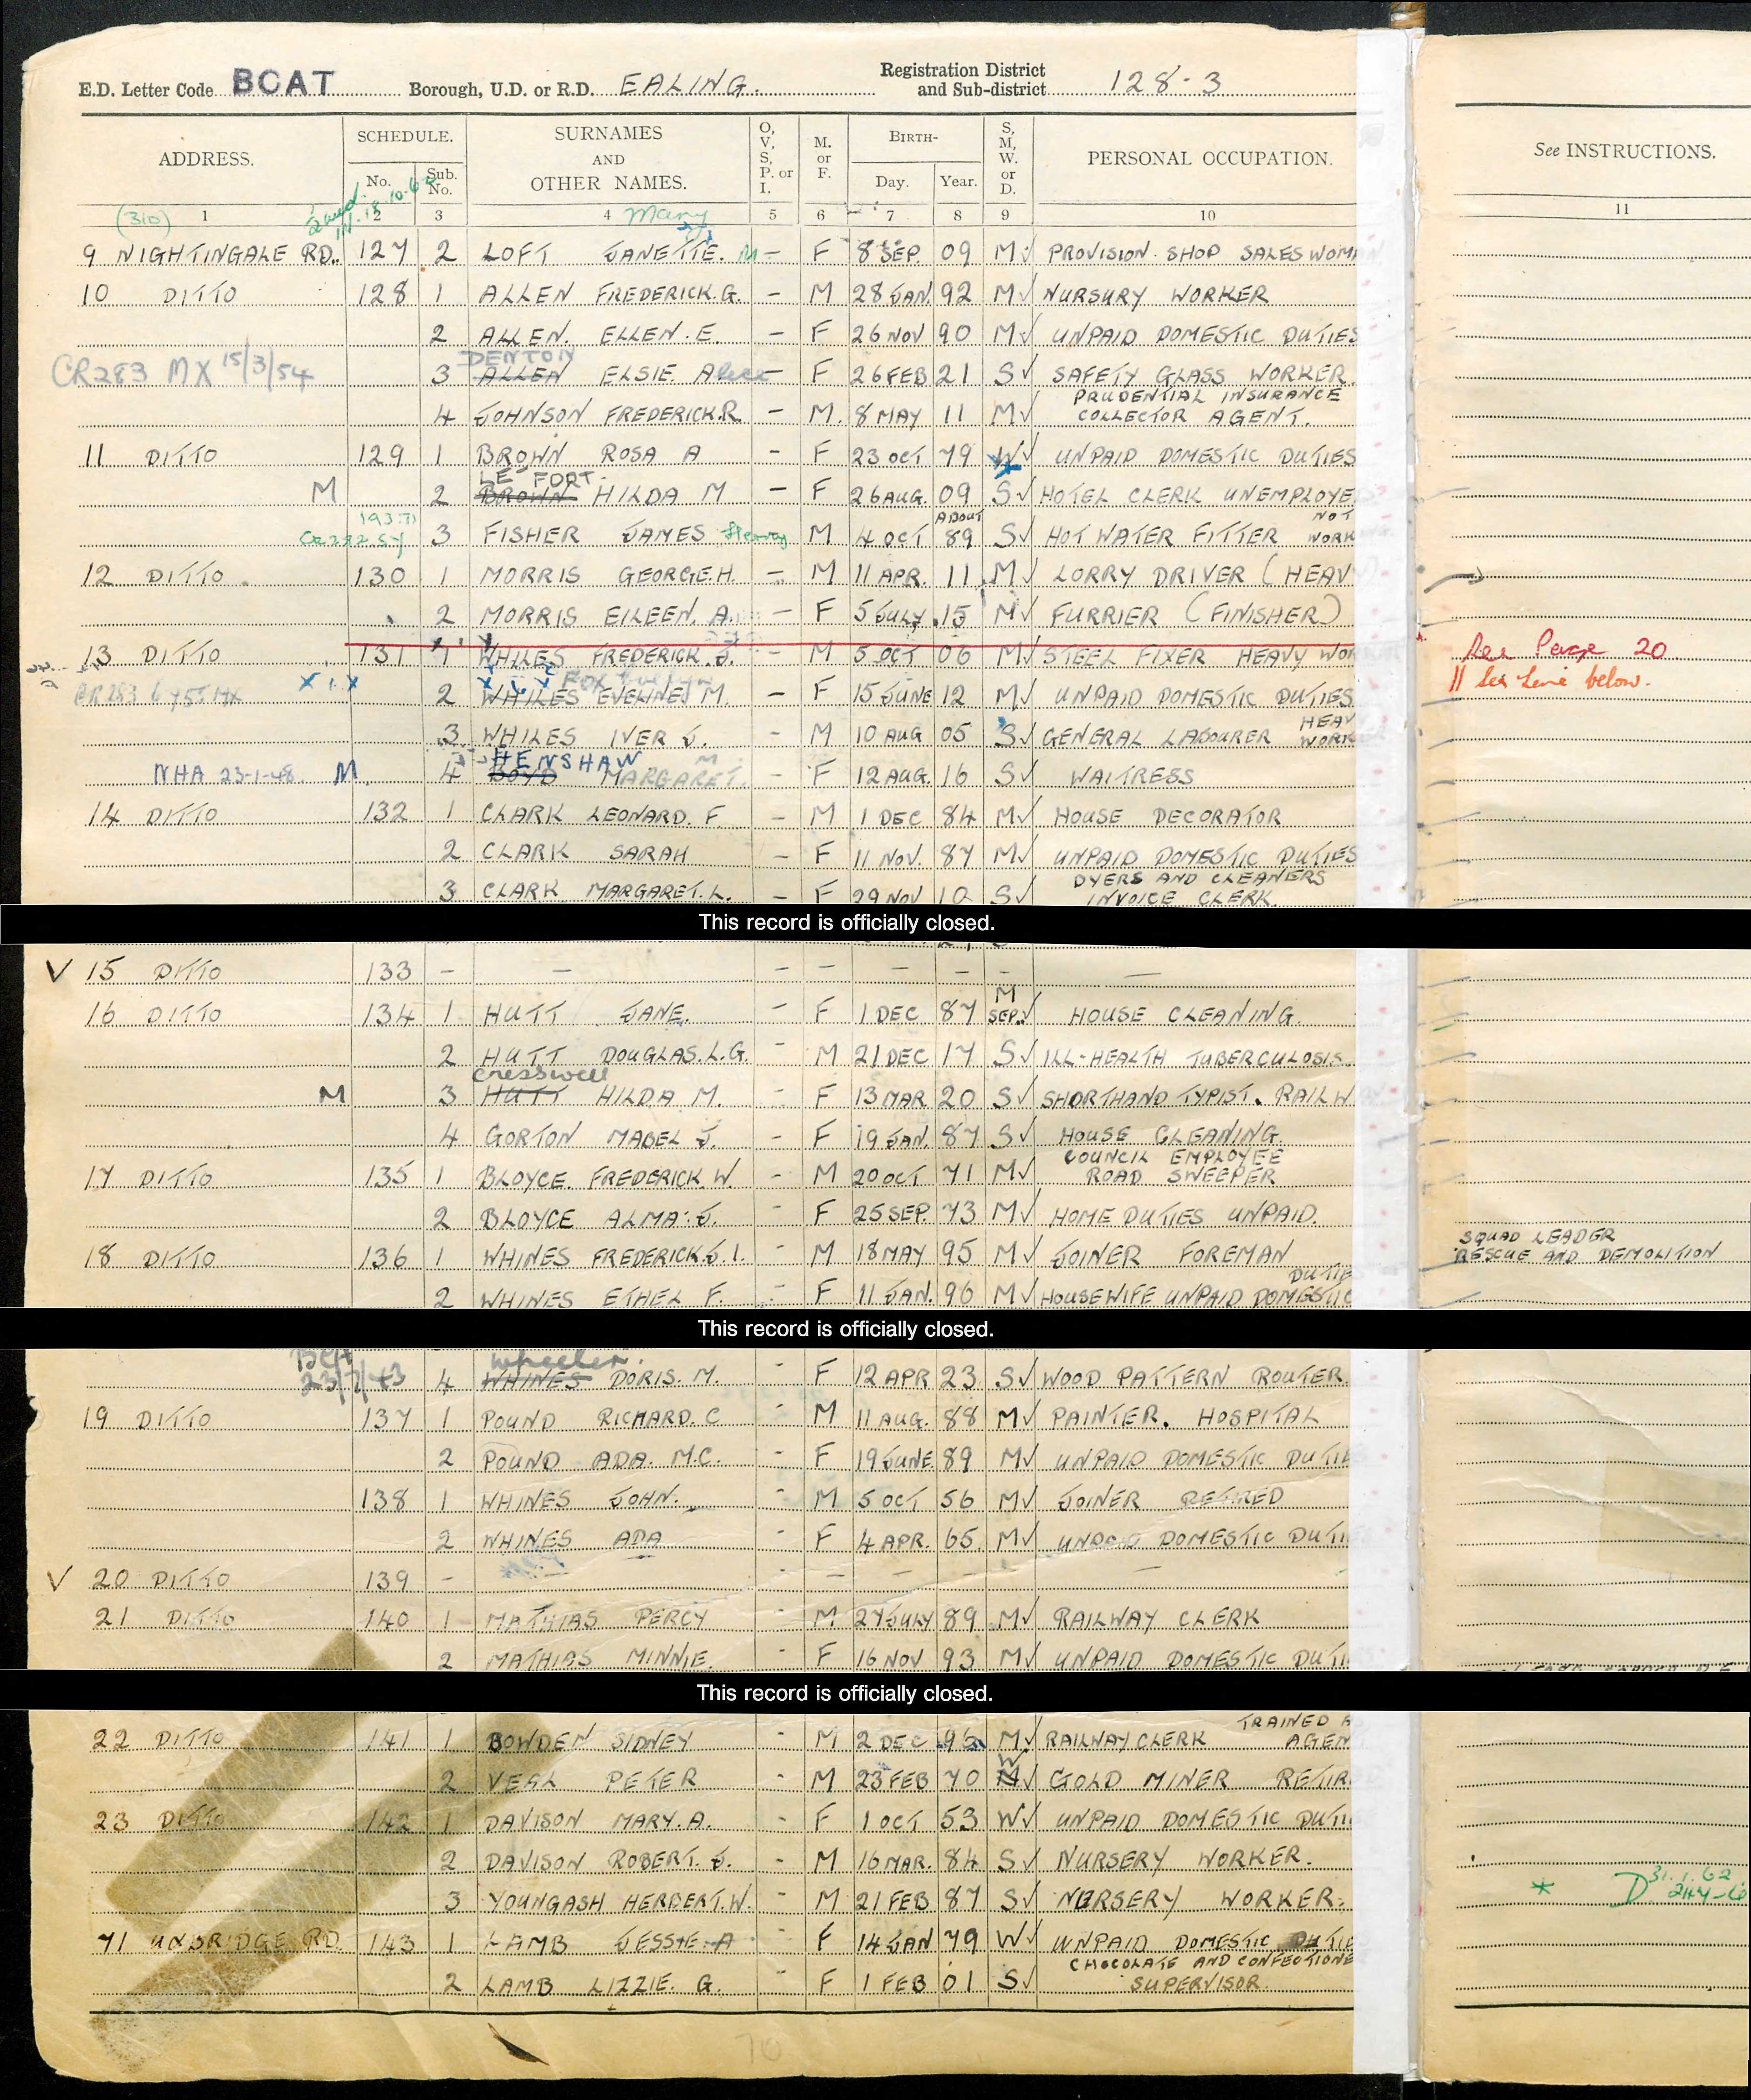 E.D. Letter Code BCAT Borough, U.D. or R.D. EALING. Registration District and Sub-district 128-3
ADDRESS. SCHEDULE. No. Sub. No. SURNAMES AND OTHER NAMES. O, V, S, P. or I. M. or F. BIRTH- Day. Year. S, M, W. or D. PERSONAL OCCUPATION. See INSTRUCTIONS.
(310) 1 2 3 4 Mary 5 6 7 8 9 10 11
9 NIGHTINGALE RD. 127 2 LOFT JANETTE. M - F 8 SEP. 09 M✓ PROVISION SHOP SALES WOMA
10 DITTO 128 1 ALLEN FREDERICK.G. - M 28 JAN. 92 M✓ NURSURY WORKER
2 ALLEN. ELLEN.E. - F 26 NOV 90 M✓ UNPAID DOMESTIC DUTIES
DENTON
CR283 MX 15/3/54 3 ALLEN ELSIE. Alice - F 26 FEB 21 S✓ SAFETY GLASS WORKER.
PRUDENTIAL INSURANCE
4 JOHNSON FREDERICK.R - M. 8 MAY 11 M✓ COLLECTOR AGENT.
11 DITTO 129 1 BROWN ROSA A - F 23 OCT 79 W✓ UNPAID DOMESTIC DUTIES
LE FORT.
M 2 BROWN HILDA M - F 26 AUG. 09 S✓ HOTEL CLERK UNEMPLOYE
ABOUT NOT
3 FISHER JAMES Henry M 4 OCT 89 S✓ HOT WATER FITTER WORK
12 DITTO 130 1 MORRIS GEORGE.H. - M 11 APR. 11 M✓ LORRY DRIVER (HEAV
2 MORRIS EILEEN. A. - F 5 JULY 15 M✓ FURRIER (FINISHER)
13 DITTO 131 1 WHILES FREDERICK.J. - M 5 OCT 06 M✓ STEEL FIXER HEAVY WOR See Page 20
FOX Evelyn || See line below.
2 WHILES EVELINE M. - F 15 JUNE 12 M✓ UNPAID DOMESTIC DUTIES
HEAV
3 WHILES IVER J. - M 10 AUG 05 S✓ GENERAL LABOURER WORK
HENSHAW M
NHA 23-1-48 M 4 BOYD MARGARET. - F 12 AUG. 16 S✓ WAITRESS
14 DITTO 132 1 CLARK LEONARD. F. - M 1 DEC 84 M✓ HOUSE DECORATOR
2 CLARK SARAH - F 11 NOV. 87 M✓ UNPAID DOMESTIC DUTIES
DYERS AND CLEANERS
3 CLARK MARGARET. L. - F 29 NOV 10 S✓ INVOICE CLERK.
This record is officially closed.
V 15 DITTO 133 - - - - - - - -
M
16 DITTO 134 1 HUTT JANE. - F 1 DEC 87 SEP.✓ HOUSE CLEANING.
2 HUTT DOUGLAS.L.G. - M 21 DEC 17 S✓ ILL-HEALTH TUBERCULOSIS.
Cresswell
M 3 HUTT HILDA M. - F 13 MAR 20 S✓ SHORTHAND TYPIST. RAILW
4 GORTON MABEL J. - F 19 JAN. 87 S✓ HOUSE CLEANING.
COUNCIL EMPLOYEE
17 DITTO 135 1 BLOYCE. FREDERICK.W. - M 20 OCT 71 M✓ ROAD SWEEPER
2 BLOYCE ALMA. J. - F 25 SEP. 73 M✓ HOME DUTIES UNPAID.
SQUAD LEADER
18 DITTO 136 1 WHINES FREDERICK.J.I. - M 18 MAY 95 M✓ JOINER FOREMAN RESCUE AND DEMOLITION
DUTIE
2 WHINES ETHEL F. - F 11 JAN. 96 M✓ HOUSEWIFE UNPAID DOMESTIC
This record is officially closed.
wheeler.
23/7/43 4 WHINES DORIS. M. - F 12 APR 23 S✓ WOOD PATTERN ROUTER.
19 DITTO 137 1 POUND RICHARD. C - M 11 AUG. 88 M✓ PAINTER. HOSPITAL
2 POUND ADA. M.C. - F 19 JUNE. 89 M✓ UNPAID DOMESTIC DUTIE
138 1 WHINES JOHN. - M 5 OCT 56 M✓ JOINER RETIRED
2 WHINES ADA - F 4 APR. 65 M✓ UNPAID DOMESTIC DUTI
V 20 DITTO 139 - - - - - -
21 DITTO 140 1 MATHIAS PERCY - M 27 JULY 89 M✓ RAILWAY CLERK
2 MATHIAS MINNIE. - F 16 NOV 93 M✓ UNPAID DOMESTIC DUTI
This record is officially closed.
TRAINED A
22 DITTO 141 1 BOWDEN SIDNEY - M 2 DEC 96 M✓ RAILWAY CLERK AGEN
W
2 VEAL PETER - M 23 FEB 70 M✓ GOLD MINER RETIR
23 DITTO 142 1 DAVISON MARY. A. - F 1 OCT 53 W✓ UNPAID DOMESTIC DUTI
2 DAVISON ROBERT. J. - M 16 MAR. 84 S✓ NURSERY WORKER.
3 YOUNGASH HERBERT.W. - M 21 FEB 87 S✓ NURSERY WORKER. * D 31.1.62
71 UXBRIDGE RD. 143 1 LAMB JESSIE.A - F 14 JAN 79 W✓ UNPAID DOMESTIC DUTIE
CHOCOLATE AND CONFECTIONE
2 LAMB LIZZIE. G. - F 1 FEB 01 S✓ SUPERVISOR.